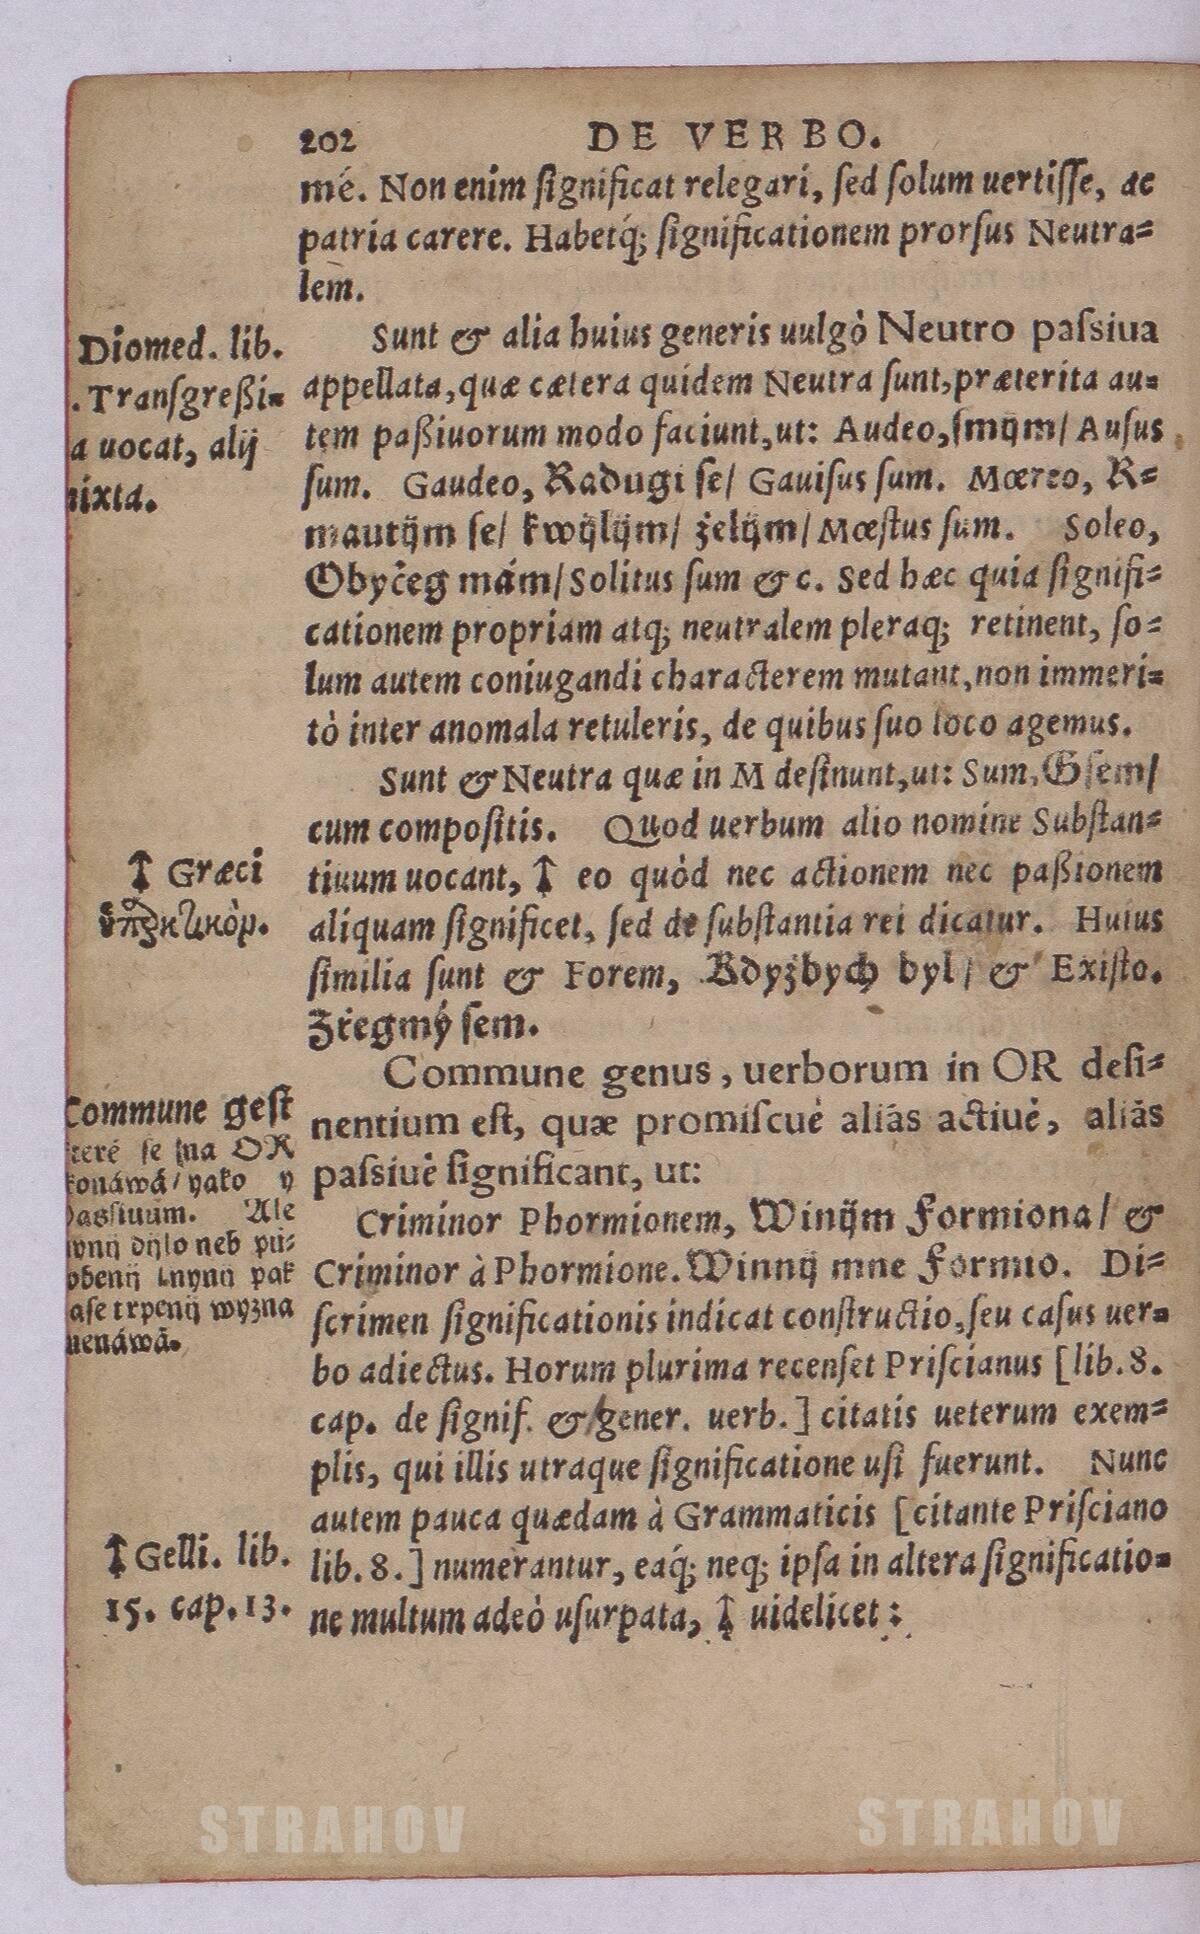 202 DE VERBO.
mé. Non enim ſignificat relegari, ſed ſolum uertiſſe, ac
patria carere. Habetq́; ſignificationem prorſus Neutra⸗
lem.
Diomed. lib.
. Tranſgreßi⸗
a uocat, alij
ixta.
Sunt & alia huius generis uulgò Neutro paſsiua
appellata, quæ cætera quidem Neutra ſunt, præterita au⸗
tem paßiuorum modo faciunt, ut: Audeo, ſmijm/ Auſus
ſum. Gaudeo, Radugi ſe/ Gauiſus ſum. Mœreo, R⸗
mautijm ſe/ kwijlijm/ želijm/ Mœſtus ſum. Soleo,
Obyčeg mám/ Solitus ſum & c. Sed hæc quia signifi⸗
cationem propriam atq; neutralem pleraq; retinent, ſo⸗
lum autem coniugandi characterem mutant, non immeri⸗
tò inter anomala retuleris, de quibus ſuo loco agemus.
Sunt & Neutra quæ in M deſinunt, ut: Sum, Gſem/
cum compoſitis. Quod uerbum alio nomine Subſtan⸗
tiuum uocant, † eo quòd nec actionem nec paßionem
aliquam ſignificet, ſed de ſubſtantia rei dicatur. Huius
ſimilia ſunt & Forem, Kdyžbych byl/ & Exiſto.
Zřegmý ſem.
† Græci
Commune genus, uerborum in OR deſi⸗
nentium eſt, quæ promiſcuè aliâs actiuè, aliâs
paſsiuè ſignificant, ut:
Commune geſt
které ſe na OR
konáwá/ yako y
Paſsiuum. Ale
dijlo neb pů⸗
obenij pak
aſe trpenij wyzna
menáwá.
Criminor Phormionem, Winijm Formiona/ &
Criminor à Phormione. Winnij mne Formio. Di⸗
ſcrimen ſignificationis indicat conſtructio, ſeu caſus uer⸗
bo adiectus. Horum plurima recenſet Priſcianus [lib. 8.
cap. de ſignif. & gener. uerb.] citatis ueterum exem⸗
plis, qui illis utraque ſignificatione uſi fuerunt. Nunc
autem pauca quædam à Grammaticis [citante Priſciano
lib. 8.] numerantur, eaq́; neq; ipſa in altera ſignificatio⸗
ne multum adeò uſurpata, † uidelicet:
† Gelli. lib.
15. cap. 13.
STRAHOV STRAHOV